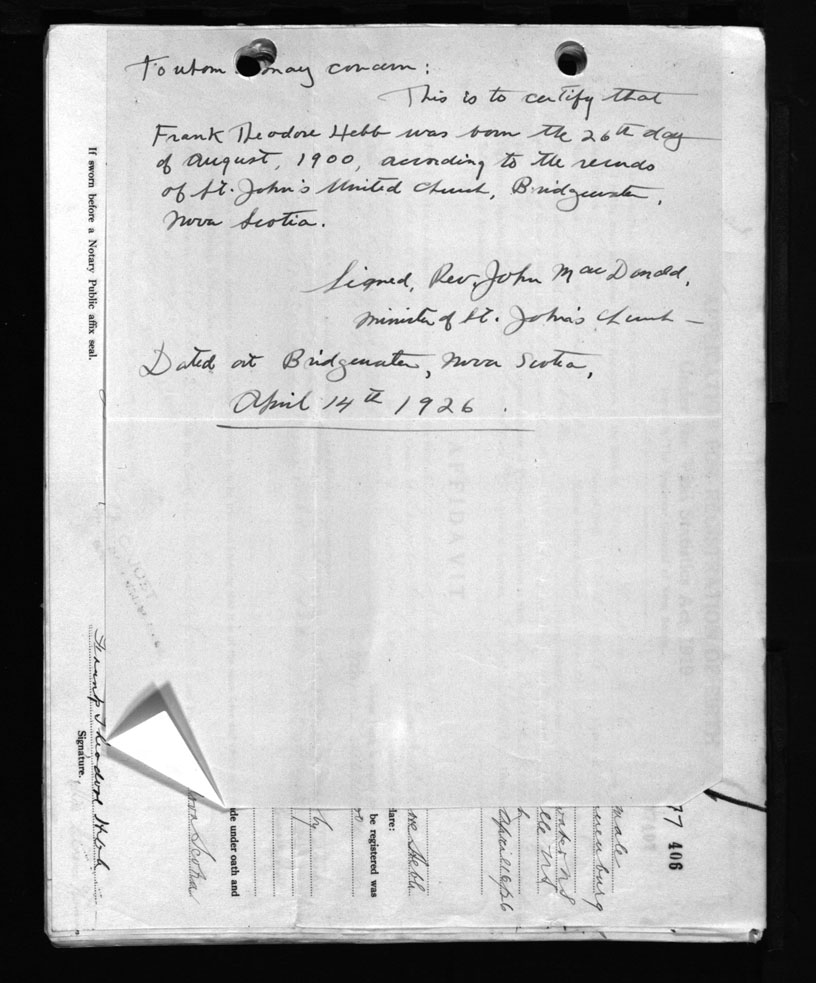 To whom may concern:
This is to certify that
Frank Theodore Hebb was born the 26th day
of August, 1900, according to the records
of St. John's United Church, Bridgewater,
Nova Scotia.
Signed, Rev. John MacDonald,
Minister of St. John's Church —
Dated at Bridgewater, Nova Scotia,
April 14th 1926.
If sworn before a Notary Public affix seal.
Frank Theodore Hebb
Signature.
AFFIDAVIT
77 406
male
nenburg
April 16/26
Hebb
lare:
be registered was
by
de under oath and
Nova Scotia